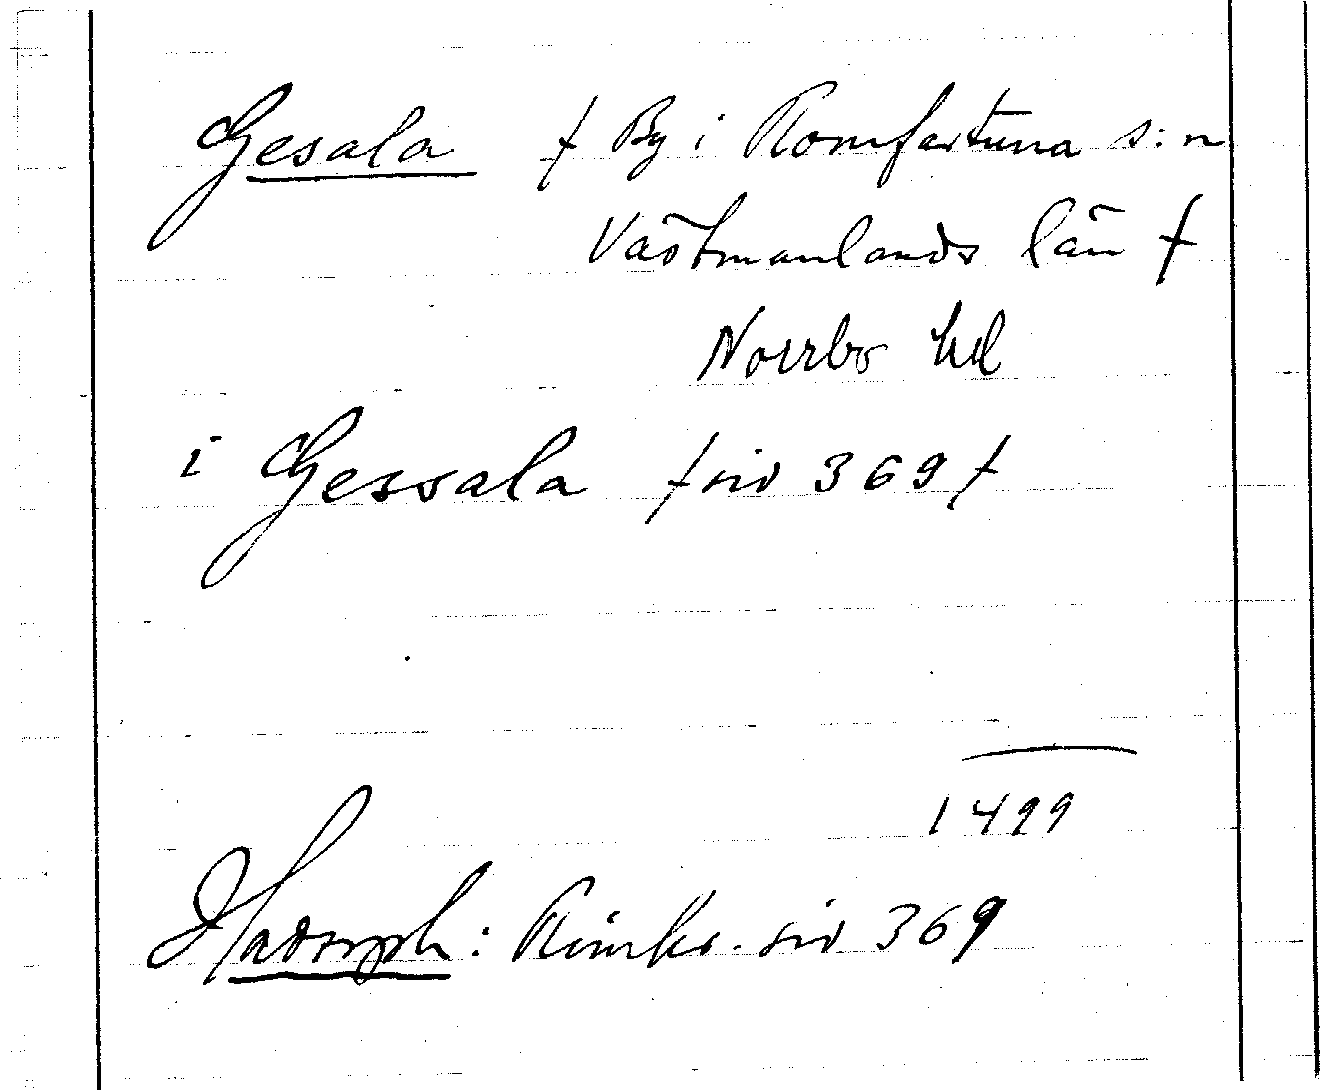 Gesala f By i Romfartuna s:n
Västmanlands län f
Norrbo hd
i Gessala f sid 369 f
1499
Hadorph: Rimkr. sid 369